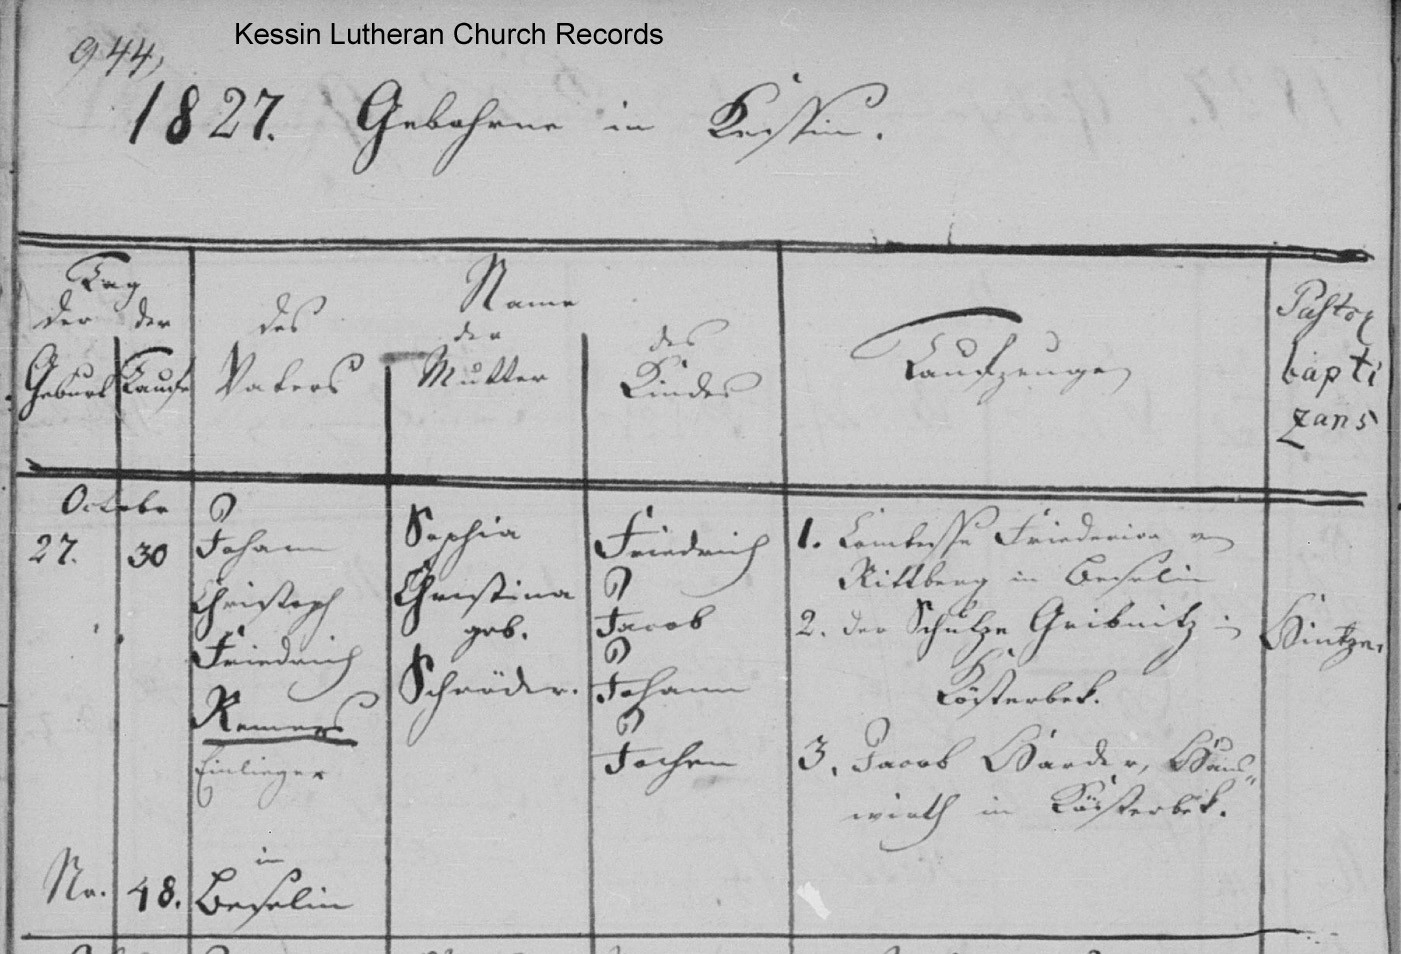 Kessin Lutheran Church Records
944,
1827. Gebohrne in Kessin.
Tag
der der
Geburt Taufe
Name
des Vaters
der Mutter
des Kindes
Taufzeugen
Pastor
bapti
zans
Octobr
27. 30
Johann
Christoph
Friedrich
Remers
Einlieger
in
Beselin
Nr. 48.
Sophia
Christina
geb.
Schröder.
Friedrich
Jacob
Johann
Jochen
1. Comtesse Friederica v
Rittberg in Beselin
2. der Schulze Gribnitz in
Kösterbek.
3. Jacob Harder, Haus-
wirth in Kösterbek.
Hintze.